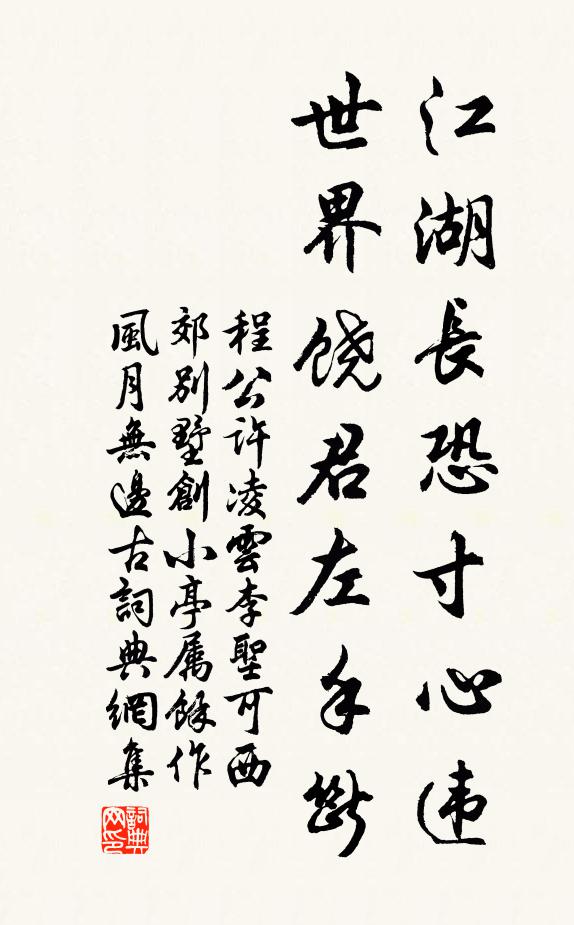 江湖長恐寸心违
世界饶君左手斷
程公許凌雲李聖可西
郊別墅創小亭属餘作
風月無邊古詞典網集
詞典
网印